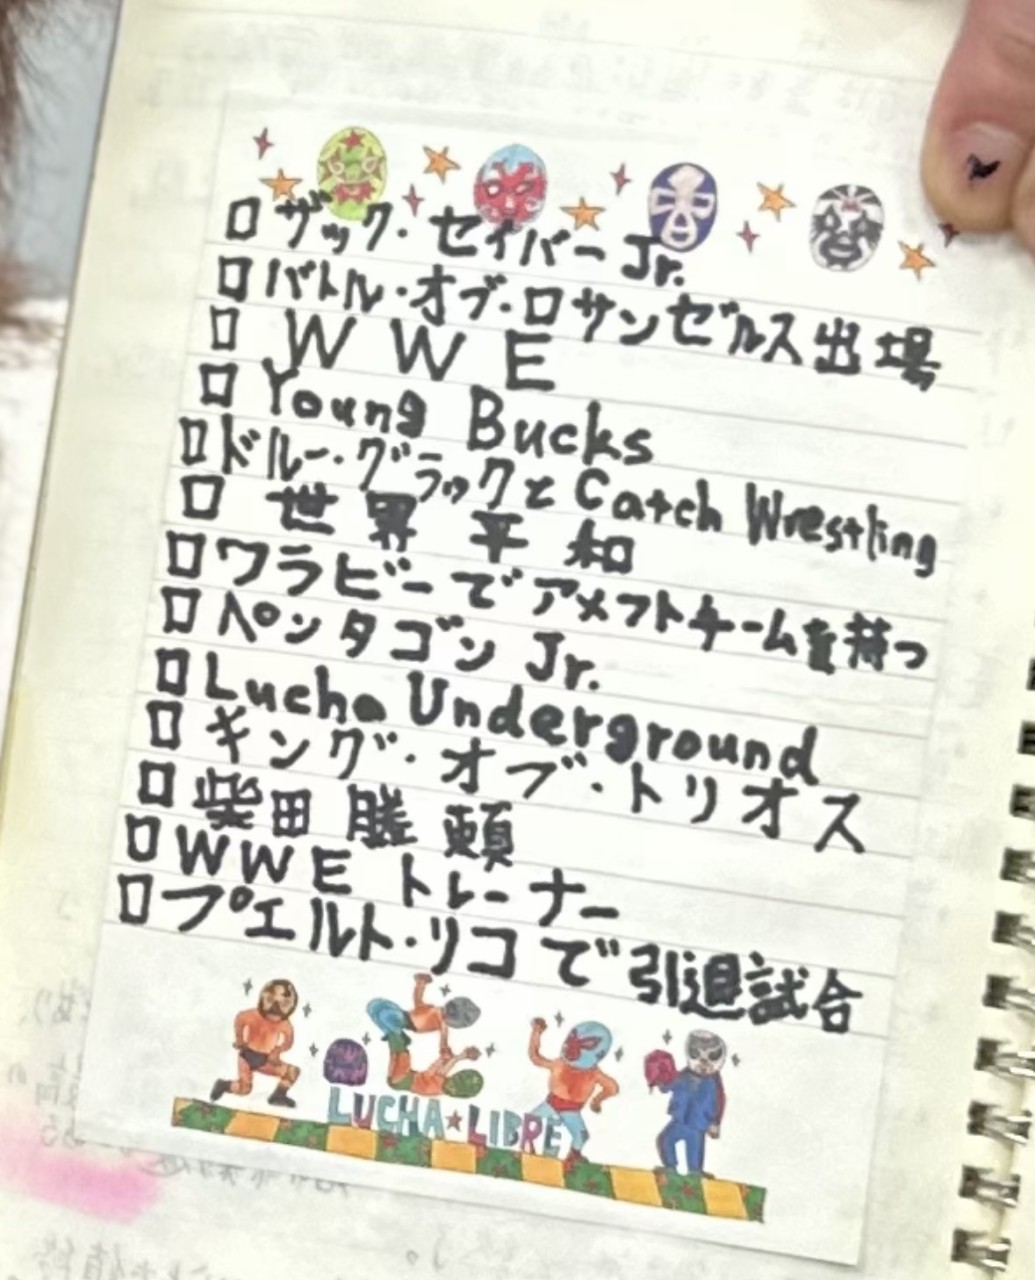 □ ザック・セイバー Jr.
□ バトル・オブ・ロサンゼルス出場
□ WWE
□ Young Bucks
□ ドルー・グラックと Catch Wrestling
□ 世界平和
□ ワラビーでアメフトチームを持つ
□ ペンタゴン Jr.
□ Lucha Underground
□ キング・オブ・トリオス
□ 柴田勝頼
□ WWE トレーナー
□ プエルト・リコで引退試合
LUCHA★LIBRE